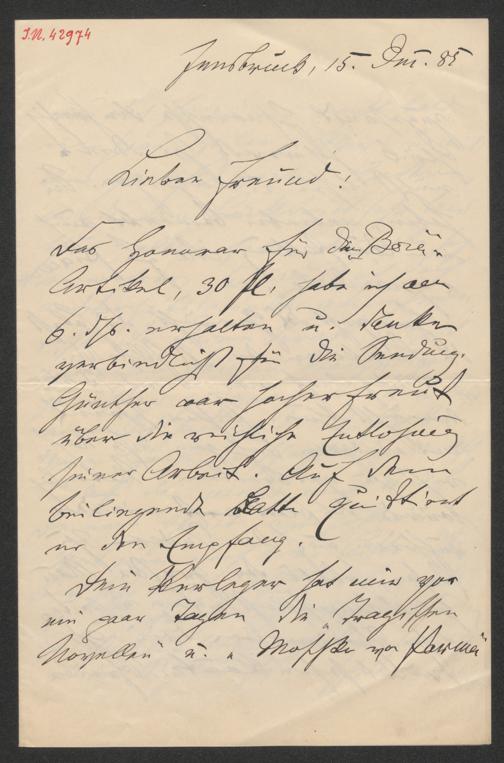 I.N. 42974
Innsbruck, 15. Dez. 85
Lieber Freund!
Das Honorar für den
Artikel, 30 fl. habe ich am
6. ds. erhalten u. danke
verbindlichst für die Sendung.
Günther war hocherfreut
über die reichliche Entlohnung
seiner Arbeit. Auf dem
beiliegende Blatte quittiert
er den Empfang.
Dein Verleger hat mir vor
ein paar Tagen die „Tragischen
Novellen" u. „ von Parma"